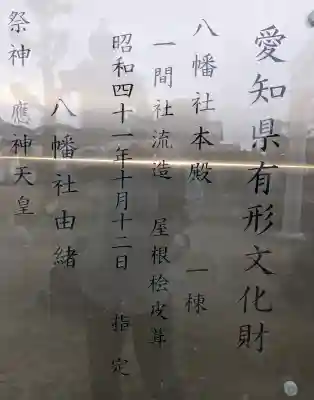 愛知県有形文化財
八幡社本殿 一棟
一間社流造 屋根桧皮葺
昭和四十一年十月十二日 指定
八幡社由緒
祭神 應神天皇